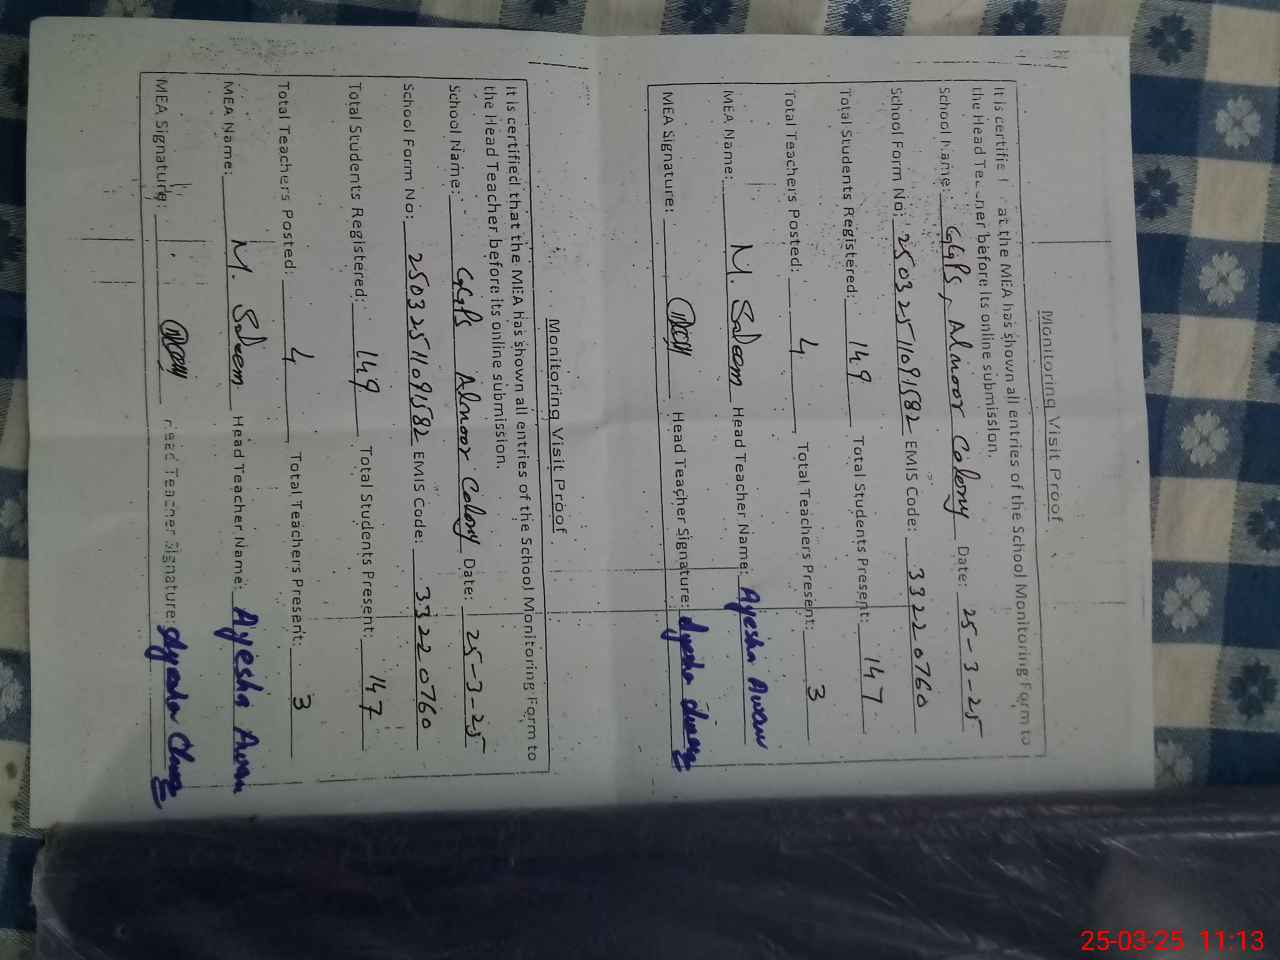 Monitoring Visit Proof
It is certifie at the MEA has shown all entries of the School Monitoring Form to
the Head Teacher before its online submission.
School Name: GGPS, Alnoor Colony Date: 25-3-25
School Form No: 25032511091582 EMIS Code: 33220760
Total Students Registered: 149 Total Students Present: 147
Total Teachers Posted: 4 Total Teachers Present: 3
MEA Name: M. Saleem Head Teacher Name: Ayesha Awan
MEA Signature: Head Teacher Signature: Ayesha
Monitoring Visit Proof
It is certified that the MEA has shown all entries of the School Monitoring Form to
the Head Teacher before its online submission.
School Name: GGPS Alnoor Colony Date: 25-3-25
School Form No: 25032511091582 EMIS Code: 33220760
Total Students Registered: 149 Total Students Present: 147
Total Teachers Posted: 4 Total Teachers Present: 3
MEA Name: M. Saleem Head Teacher Name: Ayesha Awan
MEA Signature: Head Teacher Signature: Ayesha
25-03-25 11:13